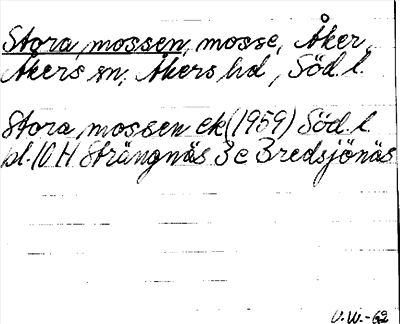 Stora mossen, mosse, Åker,
Åkers sn, Åkers hd, Söd. l.
Stora mossen ek (1959) Söd. l.
bl. 10 H Strängnäs 3 e Bredsjönäs
U.W.-62